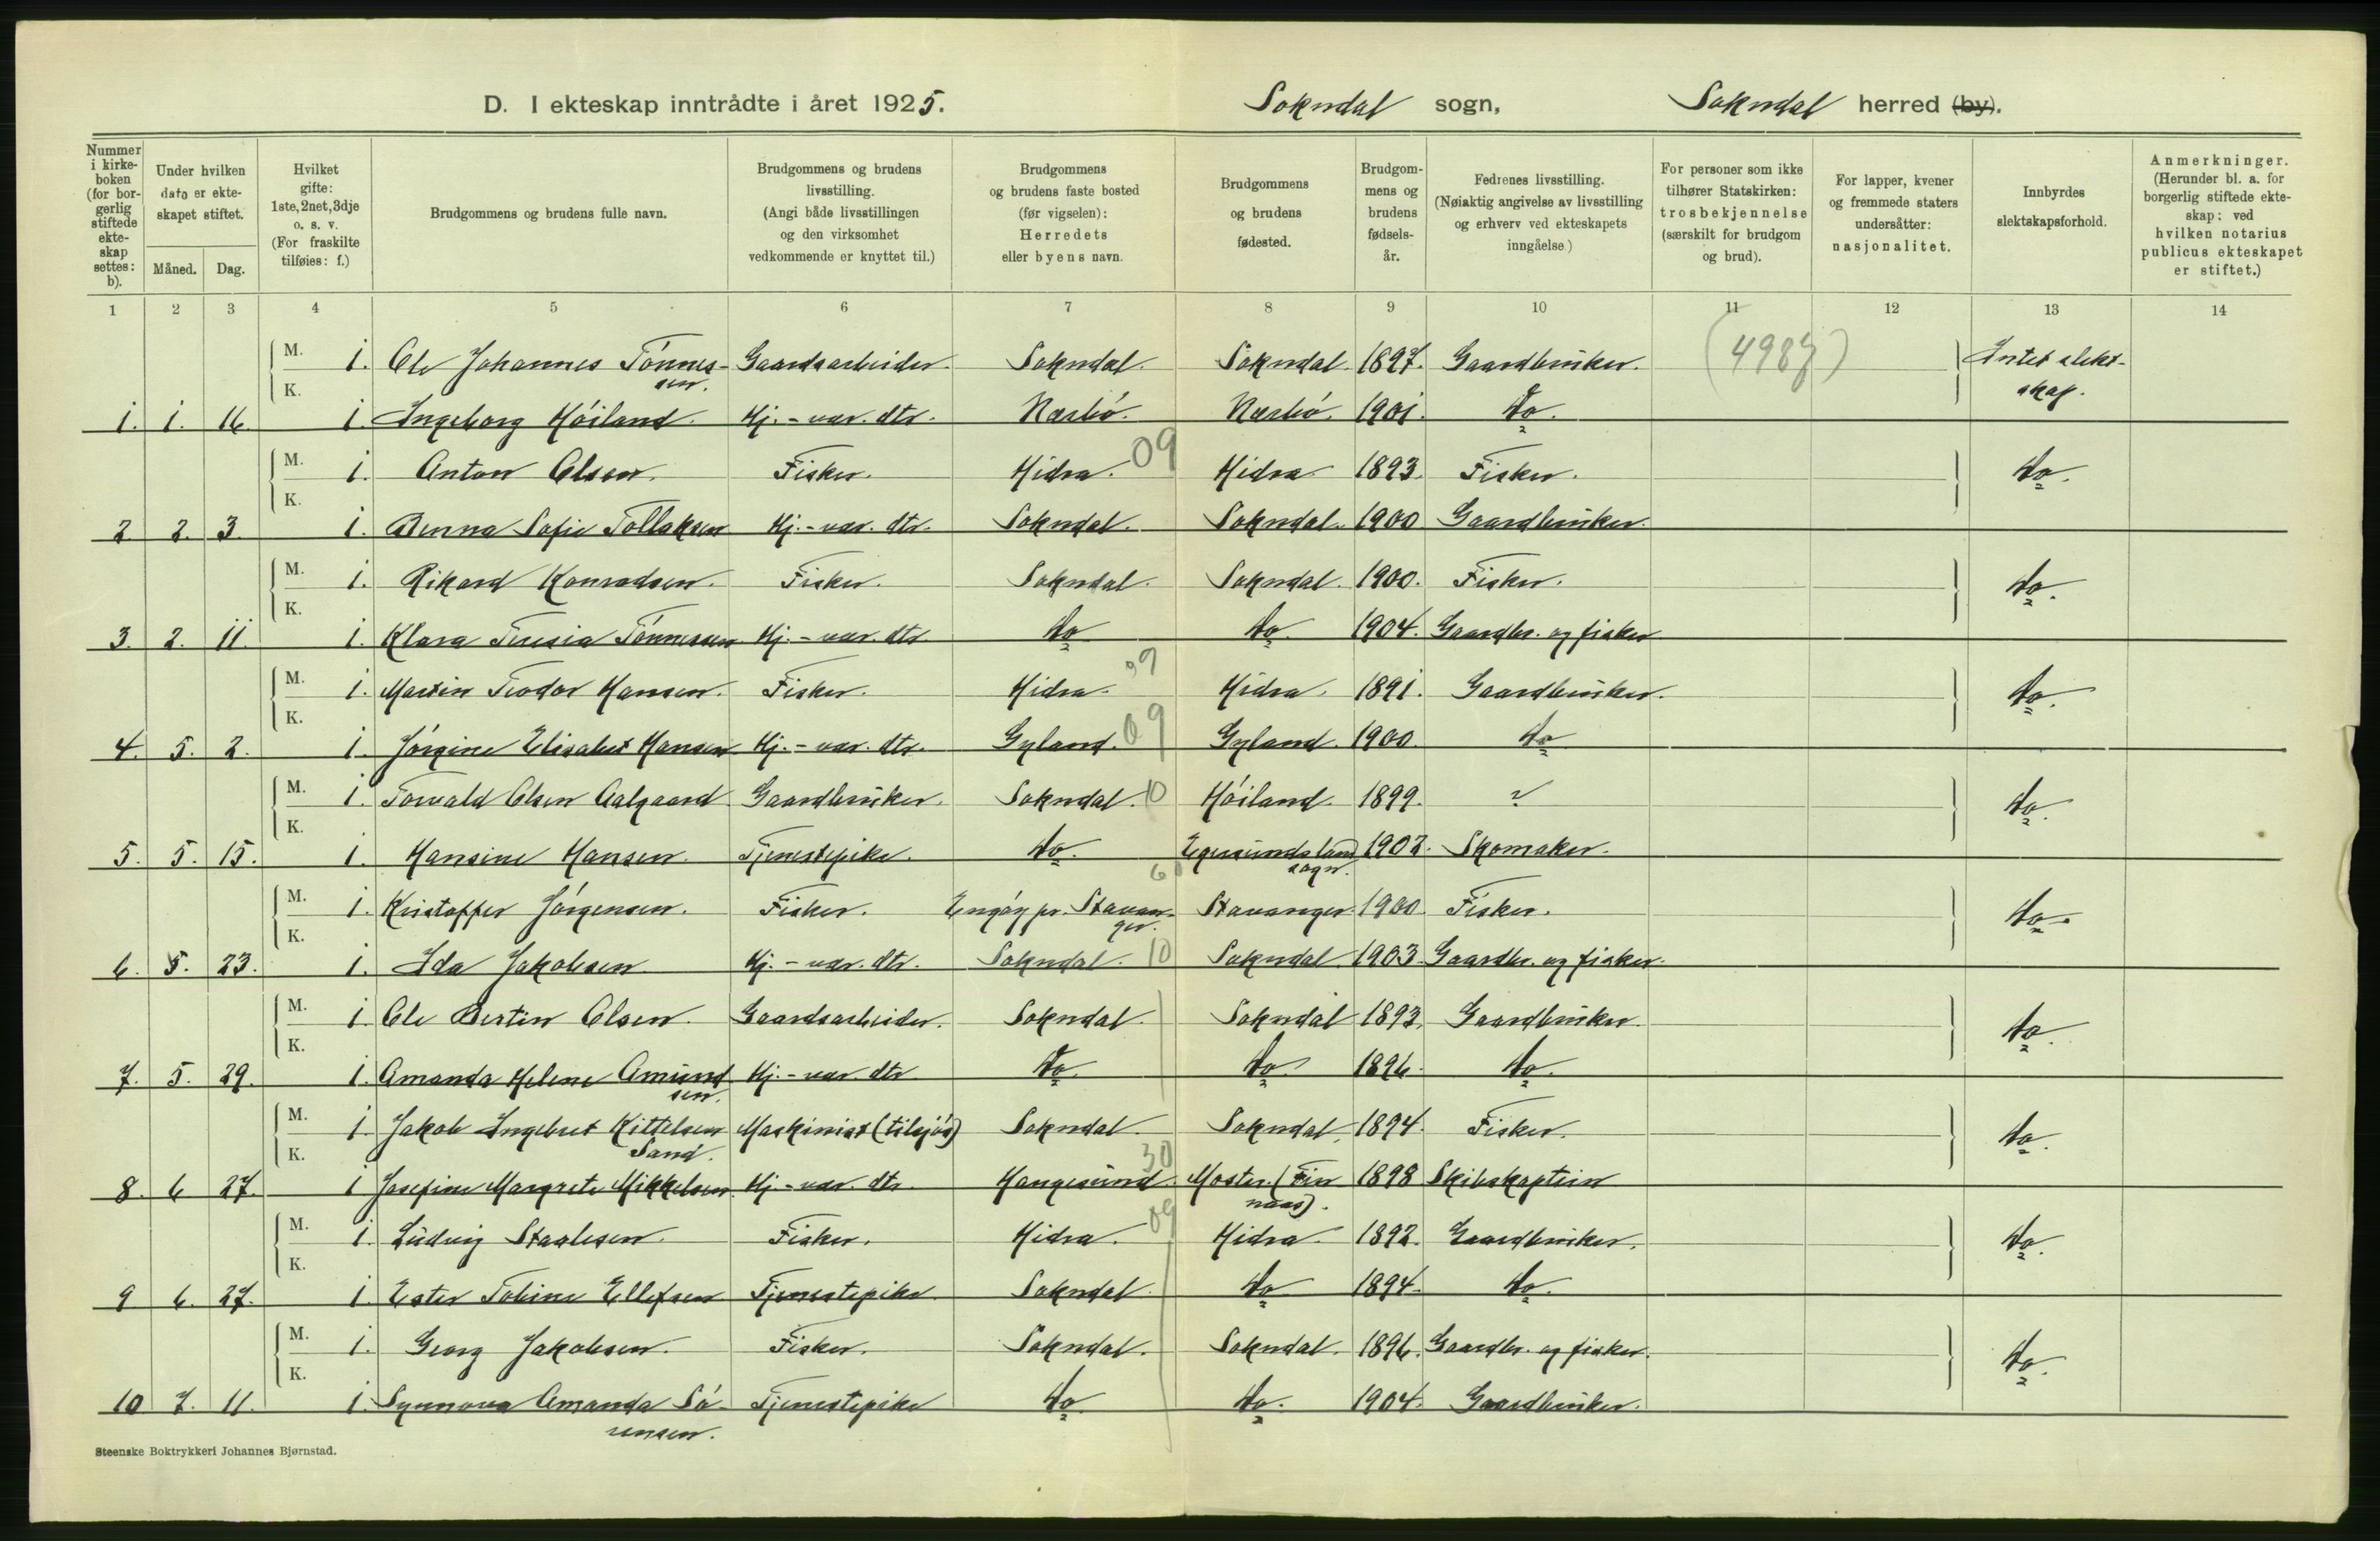 D. I ekteskap inntrådte i året 1925. Sokndal sogn, Sokndal herred (by).
Nummer i kirke-boken (for bor-gerlig stiftede ekte-skap settes: b).
Under hvilken dato er ekte-skapet stiftet.
Måned. Dag.
Hvilket gifte: 1ste, 2net, 3dje o. s. v. (For fraskilte tilføies: f.)
Brudgommens og brudens fulle navn.
Brudgommens og brudens livsstilling. (Angi både livsstillingen og den virksomhet vedkommende er knyttet til.)
Brudgommens og brudens faste bosted (før vigselen): Herredets eller byens navn.
Brudgommens og brudens fødested.
Brudgom-mens og brudens fødsels-år.
Fedrenes livsstilling. (Nøiaktig angivelse av livsstilling og erhverv ved ekteskapets inngåelse.)
For personer som ikke tilhører Statskirken: trosbekjennelse (særskilt for brudgom og brud).
For lapper, kvener og fremmede staters undersåtter: nasjonalitet.
Innbyrdes slektskapsforhold.
Anmerkninger. (Herunder bl. a. for borgerlig stiftede ekte-skap: ved hvilken notarius publicus ekteskapet er stiftet.)
1 2 3 4 5 6 7 8 9 10 11 12 13 14
M. 1. Ole Johannes Tónnes-sen. Gaardsarbeider. Sokndal. Sokndal. 1897. Gaardbruker. (4987) Intet slekt-skap.
K. 1. 1. 16. 1. Ingeborg Hóiland. Hj.-vær. dtr. Nærbó. Nærbó. 1901. Do.
M. 1. Anton Olsen. Fisker. Hidra. 09 Hidra 1893. Fisker. Do.
K. 2 2. 3. 1. Benna Sofie Tollaksen Hj.-vær. dtr. Sokndal. Sokndal. 1900 Gaardbruker.
M. 1. Rikard Konradsen. Fisker. Sokndal. Sokndal. 1900. Fisker. Do.
K. 3. 2. 11. 1. Klara Teresia Tónnessen Hj.-vær. dtr Do Do. 1904. Gaardbr. og fisker
M. 1. Martin Teodor Hansen. Fisker. Hidra. 09 Hidra. 1891. Gaardbruker. Do.
K. 4. 5. 2. 1. Jórgine Elisabet Hansen Hj.-vær. dtr. Gyland. 09 Gyland. 1900. Do
M. 1. Torvald Olsen Aalgaard Gaardbruker. Sokndal. 10 Hóiland. 1899. ? Do.
K. 5. 5. 15. 1. Hansine Hansen. Tjenestepike. Do. Egersunds land sogn. 1902. Skomaker.
M. 1. Kristoffer Jórgensen. Fisker. Engóy pr. Stavan-ger. Stavanger. 1900. Fisker. Do.
K. 6. 5. 23. 1. Ida Jakobsen Hj.-vær. dtr. Sokndal. 10 Sokndal. 1903. Gaardbr. og fisker.
M. 1. Ole Bertin Olsen. Gaardsarbeider. Sokndal. Sokndal 1893. Gaardbruker. Do.
K. 7. 5. 29. 1. Amanda Helene Amundsen. Hj.-vær. dtr Do Do. 1896. Do.
M. 1. Jakob Ingebret Kittelsen Sand. Maskinist (tilsjós) Sokndal Sokndal. 1894. Fisker. Do.
K. 8. 6 27. 1 Josefine Margrete Mikkelsen Hj-vær. dtr. Haugesund. 30 Moster. (Fin naas). 1898 Skibskaptein
M. 1. Ludvig Staalesen. Fisker. Hidra. 09 Hidra. 1892. Gaardbruker. Do.
K. 9 6. 27. 1. Ester Tobine Ellefsen Tjenestepike Sokndal. Do 1894. Do.
M. 1. Georg Jakobsen. Fisker. Sokndal. Sokndal. 1896. Gaardbr. og fisker. Do.
K. 10 7. 11. 1. Synnove Amanda Só-rensen. Tjenestepike Do Do. 1904. Gaardbruker.
Steenske Boktrykkeri Johannes Bjørnstad.